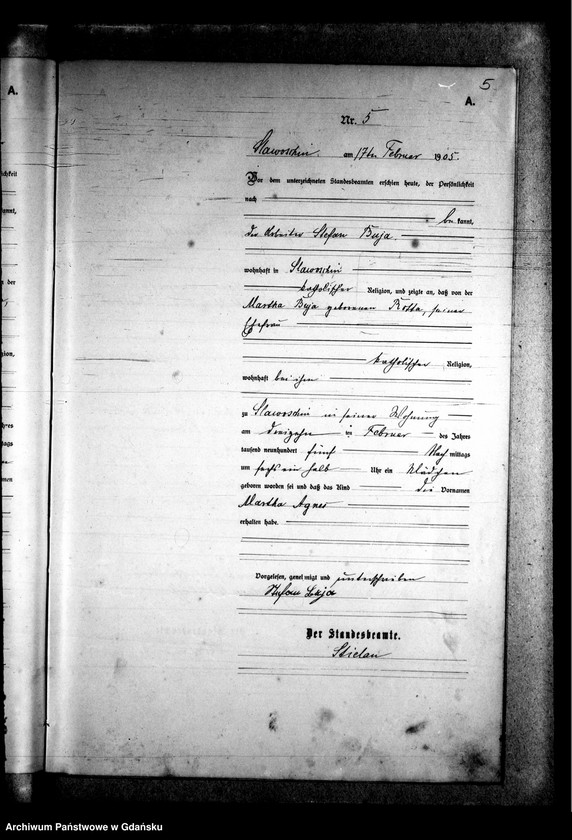 5
A.
Nr. 5
Slawoschin am 17ten Februar 1905.
Vor dem unterzeichneten Standesbeamten erschien heute, der Persönlichkeit
nach
bekannt,
der Arbeiter Stefan Buja
wohnhaft in Slawoschin
katholischer Religion, und zeigte an, daß von der
Martha Buja geborenen Rotta, seiner
Ehefrau
katholischer Religion,
wohnhaft bei ihm
zu Slawoschin in seiner Wohnung
am dreizehn in Februar des Jahres
tausend neunhundert fünf Nachmittags
um sechs ein halb Uhr ein Mädchen
geboren worden sei und daß das Kind die Vornamen
Martha Agnes
erhalten habe.
Vorgelesen, genehmigt und unterschrieben
Stefan Buja
Der Standesbeamte.
A.
Archiwum Państwowe w Gdańsku